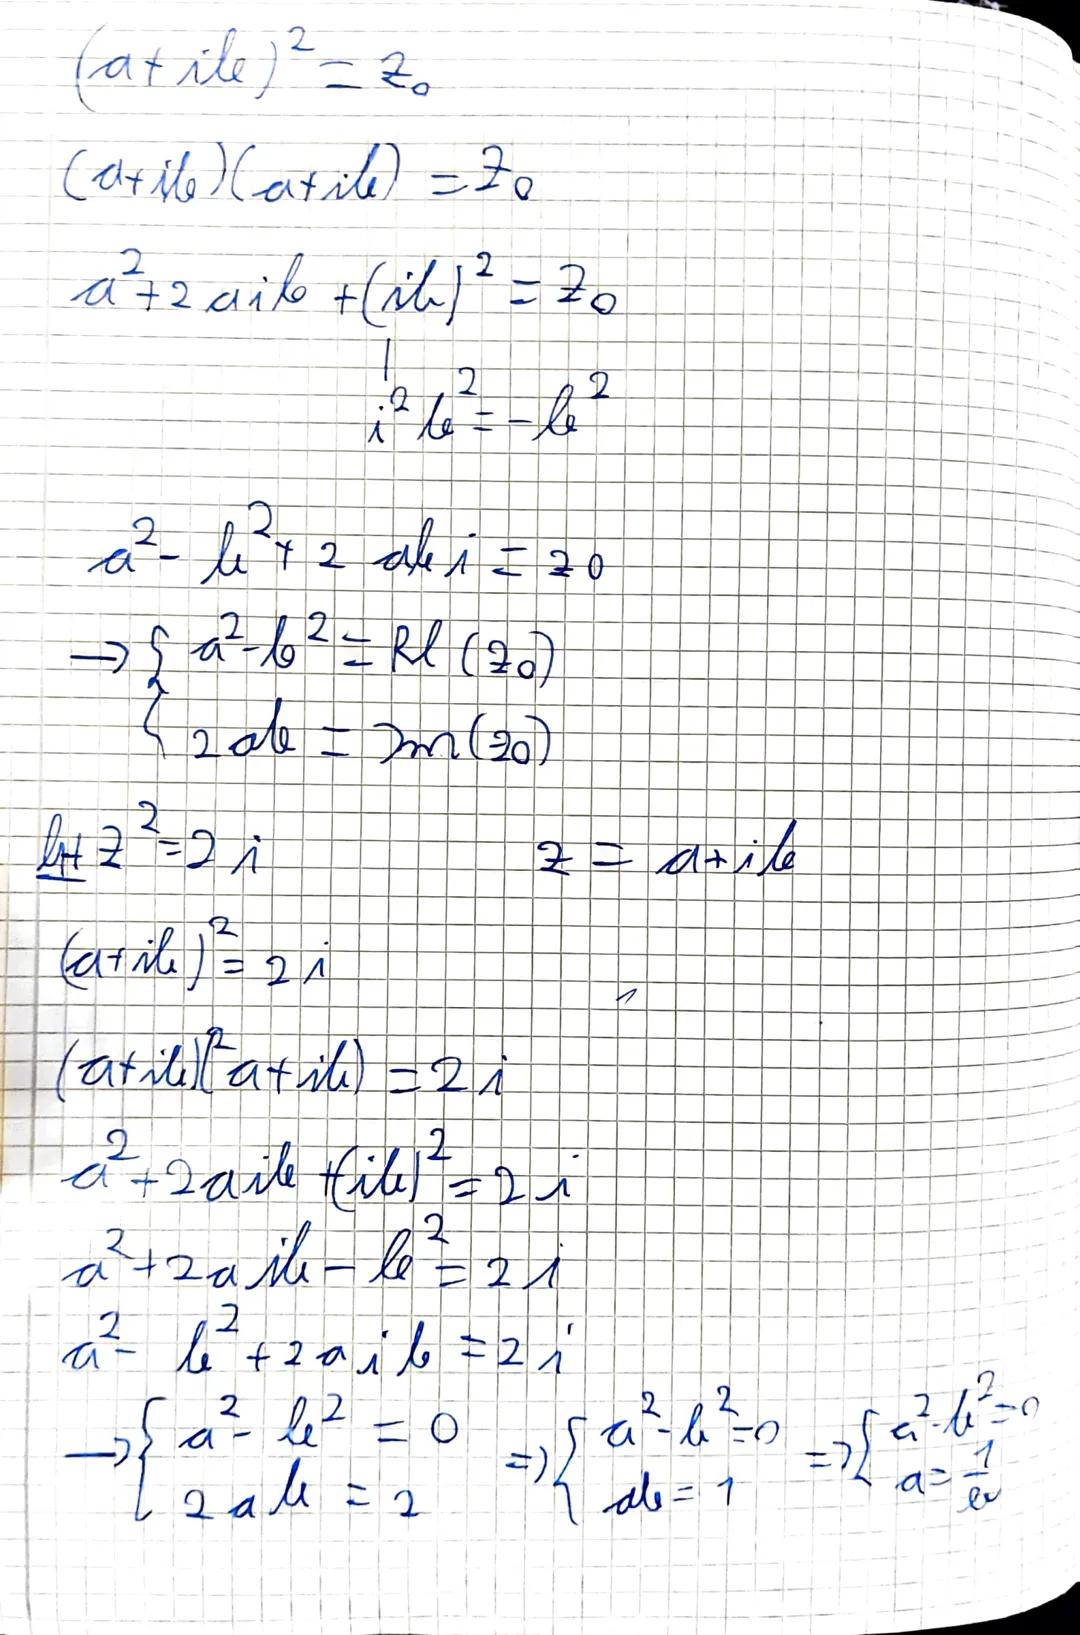 (a+ib)² = z₀
(a+ib)(a+ib) = z₀
a²+2aib+(ib)² = z₀
i²b² = -b²
a²-b²+2abi = z0
→ { a²-b² = Re(z0)
2ab = Im(z0)
z² = 2i z = a+ib
(a+ib)² = 2i
(a+ib)(a+ib) = 2i
a²+2aib+(ib)² = 2i
a²+2aib-b² = 2i
a²-b²+2aib = 2i
→ { a²-b² = 0 => { a²-b²=0 => { a²-b²=0
2ab = 2 ab = 1 a = 1/b